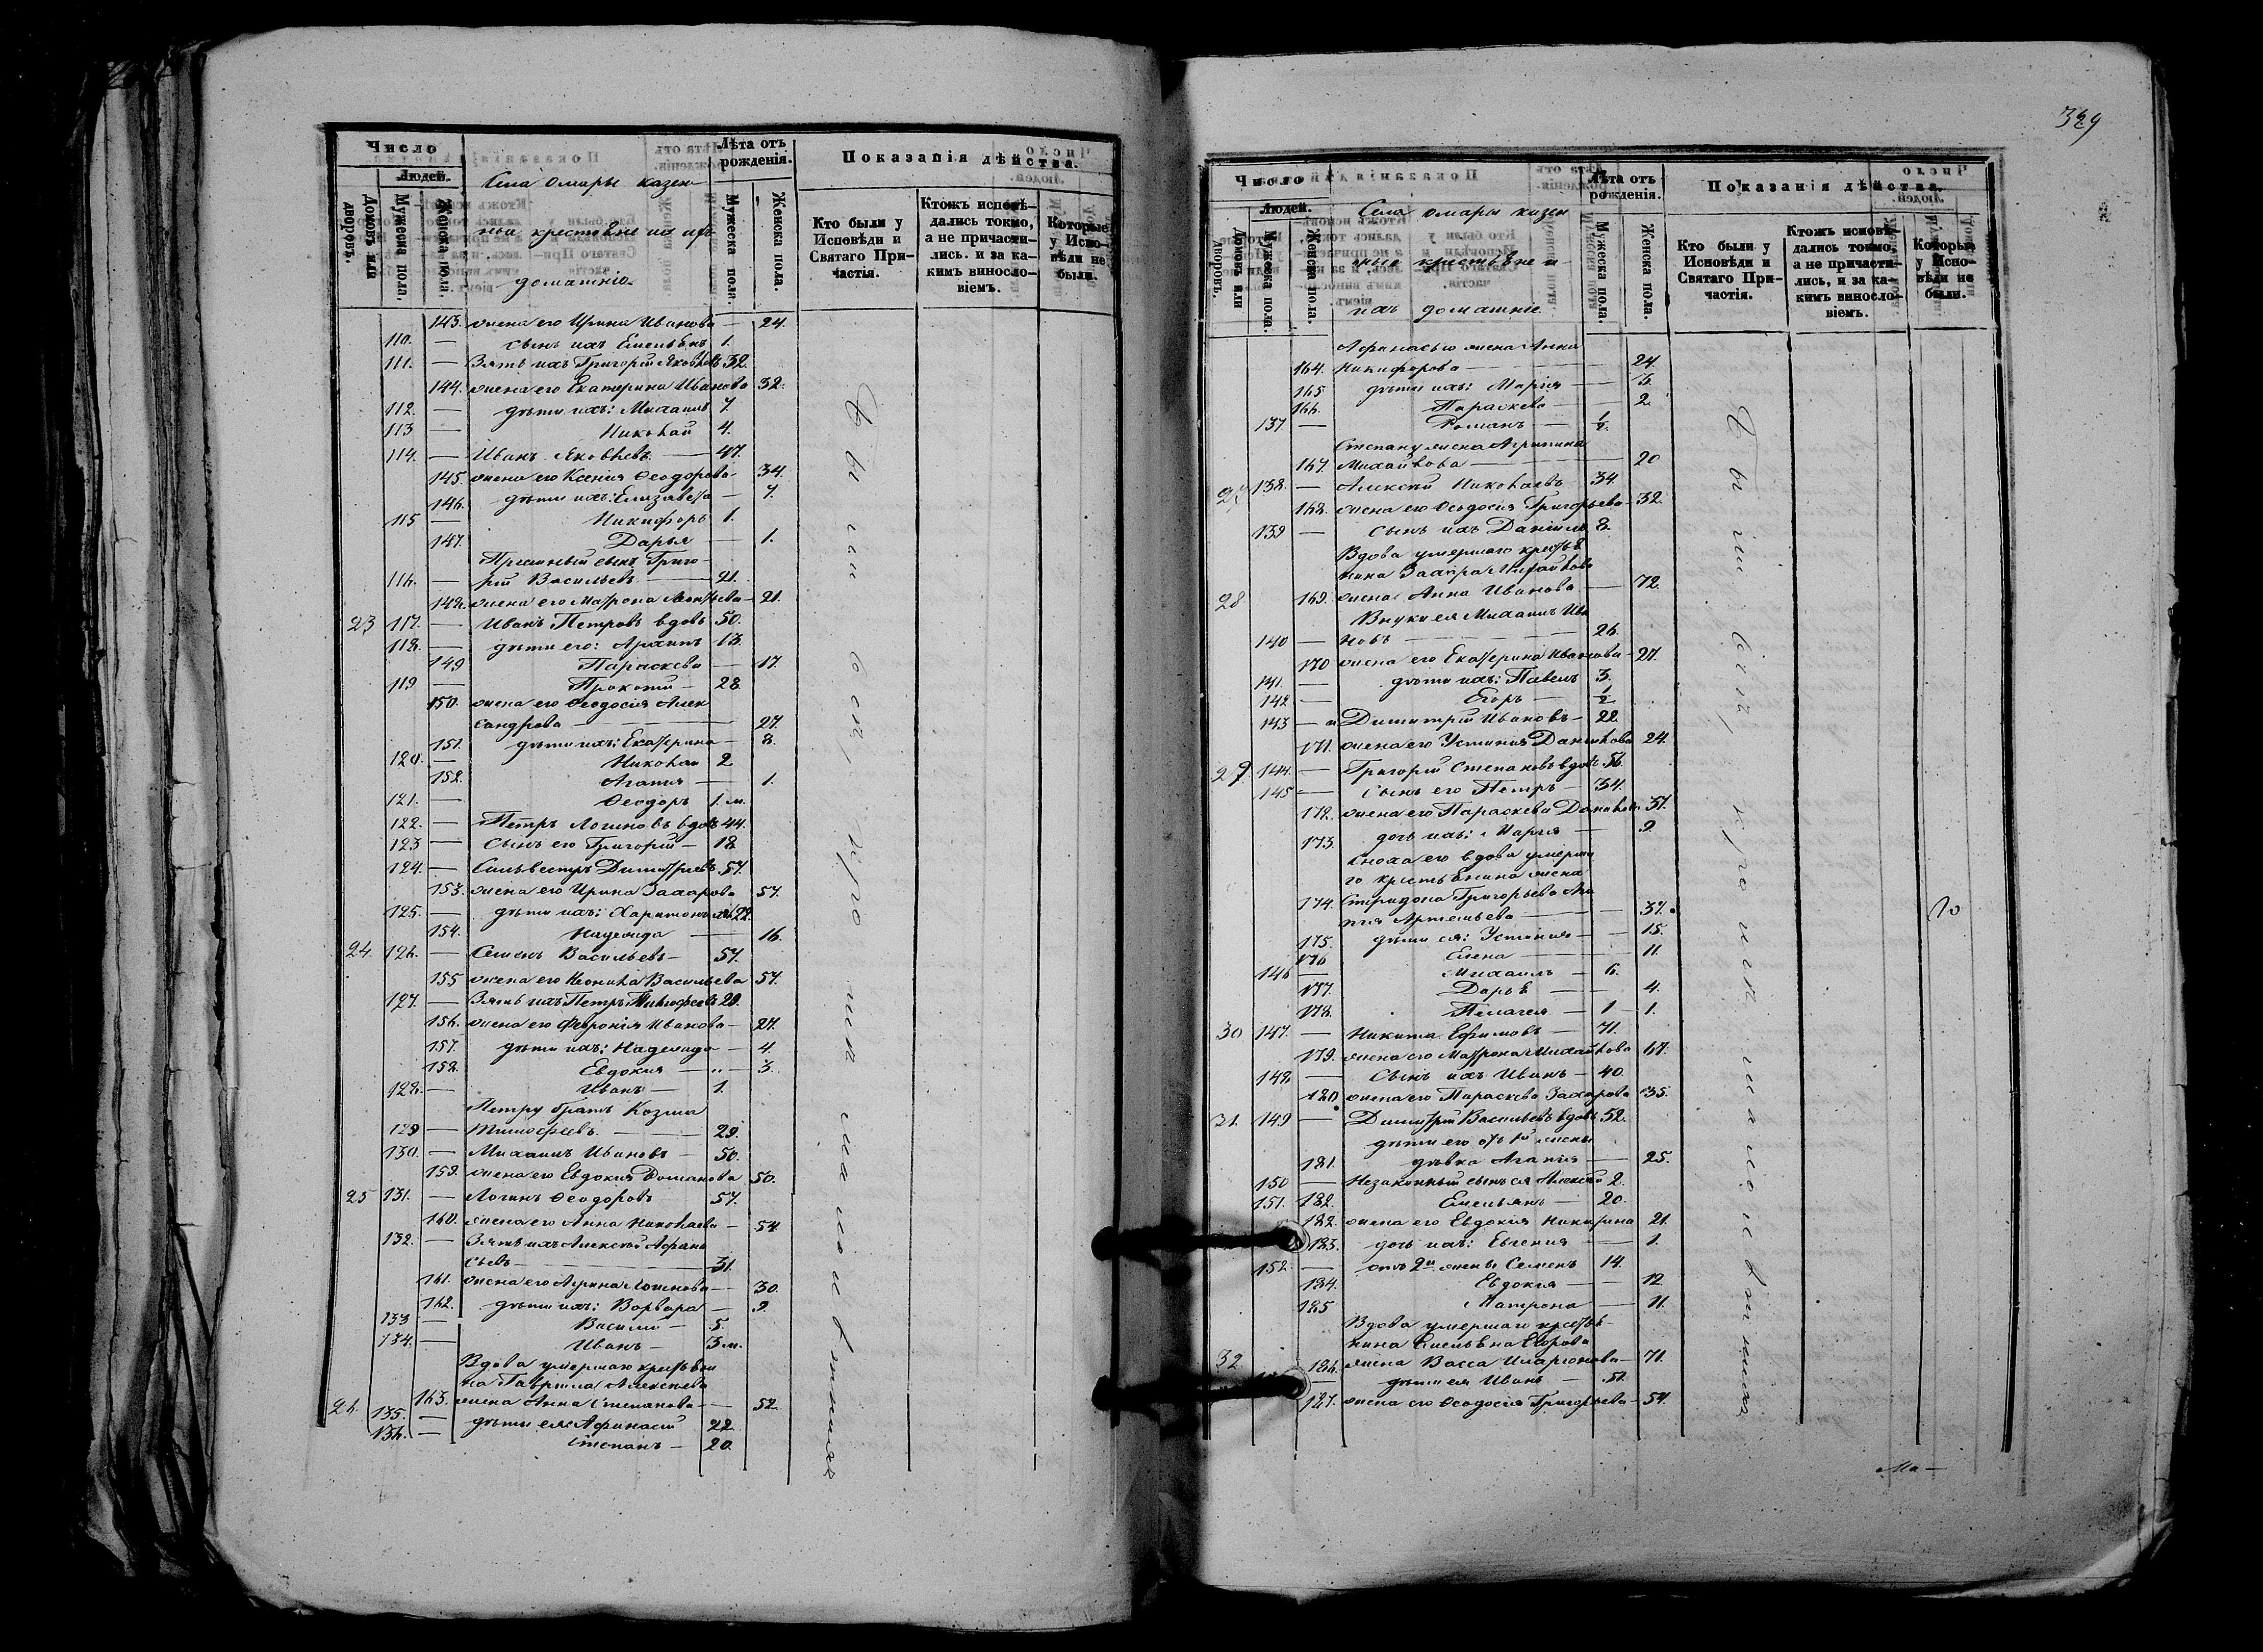 Число
Людей.
Домовъ или дворовъ.
Мужеска пола.
Женска пола.
Села Омары казен
ныи крестьяне ихъ
домашніе
Лѣта отъ рожденія.
Мужеска пола.
Женска пола.
Показанія дѣйства.
Кто были у Исповѣди и Святаго Причастія.
Ктожъ исповѣдались токмо, а не причастились. и за какимъ винословіемъ.
Которые у Исповѣди не были.
143. жена его Ирина Иванова — 24.
110. — сынъ ихъ Емельянъ 1.
111. — Зять ихъ Григорій Яковлевъ 32.
144. жена его Екатерина Иванова 32.
112. — дѣти ихъ: Михаилъ 7.
113 — Николай 4.
114. — Иванъ Яковлевъ — 47.
145. жена его Ксенія Ѳеодорова 34.
146. дѣти ихъ: Елизавета — 7.
115 — Никифоръ 1.
147. Дарья — 1.
сынъ Григо-
116. — рій Васильевъ — 21.
148. жена его Матрона — 21.
23 117. — Иванъ Петровъ вдовъ 50.
118. — дѣти его: Архипъ 13.
149 Параскева — 17.
119 — Прокопій — 28.
150. жена его Ѳеодосія Алек
сандрова — 27.
151. дѣти ихъ: Екатерина — 8.
120. — Николай 2
152. Агапія — 1.
121. — Ѳеодоръ 1. м.
122. — Петръ Логиновъ вдовъ 44.
123 — Сынъ его Григорій — 18
124. — Сильвестръ Димитріевъ 57.
153. жена его Ирина Захарова 57.
125. — дѣти ихъ: Харитонъ 22.
154. Надежда — 16.
24. 126. — Семенъ Васильевъ — 57.
155 жена его Васильева 57.
127. — Зять ихъ Петръ Тимофеевъ 29.
156. жена его Февронія Иванова — 27.
157. дѣти ихъ: Надежда — 4.
158. Евдокия — 3.
128. — Иванъ — 1.
Петру братъ Козма
129 — Тимофеевъ. — 29.
130. — Михаилъ Ивановъ — 50.
159. жена его Евдокия Романова 50.
25 131. — Логинъ Ѳеодоровъ 57.
160. жена его Анна Николаева — 54.
132. — Зять ихъ Алексѣй Афана
сьевъ — 31.
161. жена его Логинова — 30.
162. дѣти ихъ: Варвара — 9.
133 — Василій — 5.
134. — Иванъ — 3 м.
Вдова умершаго крестьяни
на Гавріила Алексѣева
26. 163. жена Анна Степанова — 52.
135. — дѣти ея: Афанасій 22.
136. — Степанъ — 20.
329
Число
Людей.
Домовъ или дворовъ.
Мужеска пола.
Женска пола.
Села Омары казен
ныя крестьяне и
ихъ домашніе.
Лѣта отъ рожденія.
Мужеска пола.
Женска пола.
Показанія дѣйства.
Кто были у Исповѣди и Святаго Причастія.
Ктожъ исповѣдались токмо, а не причастились, и за какимъ винословіемъ.
Которые у Исповѣди не были.
Афанасью жена Анна
164. Никифорова — 24.
165 дѣти ихъ: Марія — 3.
166. Параскева — 2.
137 — Романъ — ½.
Степану жена Агрипина
167. Михайлова — 20
27 138. — Алексѣй Николаевъ 34
168. жена его Ѳеодосія Григорьева — 32.
139 — Сынъ ихъ Даніилъ 8.
Вдова умершаго крестья
нина Захара Михайлова
28 169. жена Анна Иванова — 72.
Внуки ея Михаилъ Ива
140 — новъ — 26.
170 жена его Екатерина Иванова — 27.
141. — дѣти ихъ: Павелъ 3.
142 — Егоръ — ½
143 — Димитрій Ивановъ — 22.
171. жена его Устинія Данилова 24.
29. 144. — Григорій Степановъ вдовъ 56.
145 — Сынъ его Петръ — 34.
172. жена его Параскева 37.
173. дочь ихъ: Марія — 9.
Сноха его вдова умерша
го крестьянина жена
174. Спиридона Григорьева Ага
пія Артемьева — 37.
175. дѣти ея: Устинія — 15.
176 Елена — 11.
146 — Михаилъ — 6.
177. Дарья — 4.
178. Пелагея — 1 — 1.
30 147. — Никита Ефимовъ — 71.
179. жена его Матрона Михайлова 67.
148 — Сынъ ихъ Иванъ — 40.
180. жена его Параскева Захарова 35.
31. 149 — Димитрій Васильевъ вдовъ 52.
дѣти его отъ 1й жены
181. дѣвка Агапія — 25.
150 — Незаконный сынъ ея Алексѣй 2.
151. 182. Емельянъ — 20.
182. жена его Евдокия Никифорова 21.
183. дочь ихъ: Евгенія — 1.
152 — отъ 2й жены Семенъ 14.
184. Евдокия — 12.
185 Матрона — 11.
Вдова умершаго крестья-
нина Емельяна Егорова
32 186. жена Васса Иларіонова — 71.
— дѣти ея Иванъ — 51.
187. жена его Ѳеодосія Григорьева — 54.
Ма—